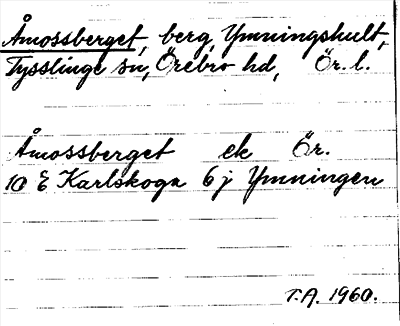 Åmossberget, berg, Ymningshult,
Tysslinge sn, Örebro hd, Ör. l.
Åmossberget ek Ör.
10 E Karlskoga 6 j Ymningen
T.A. 1960.